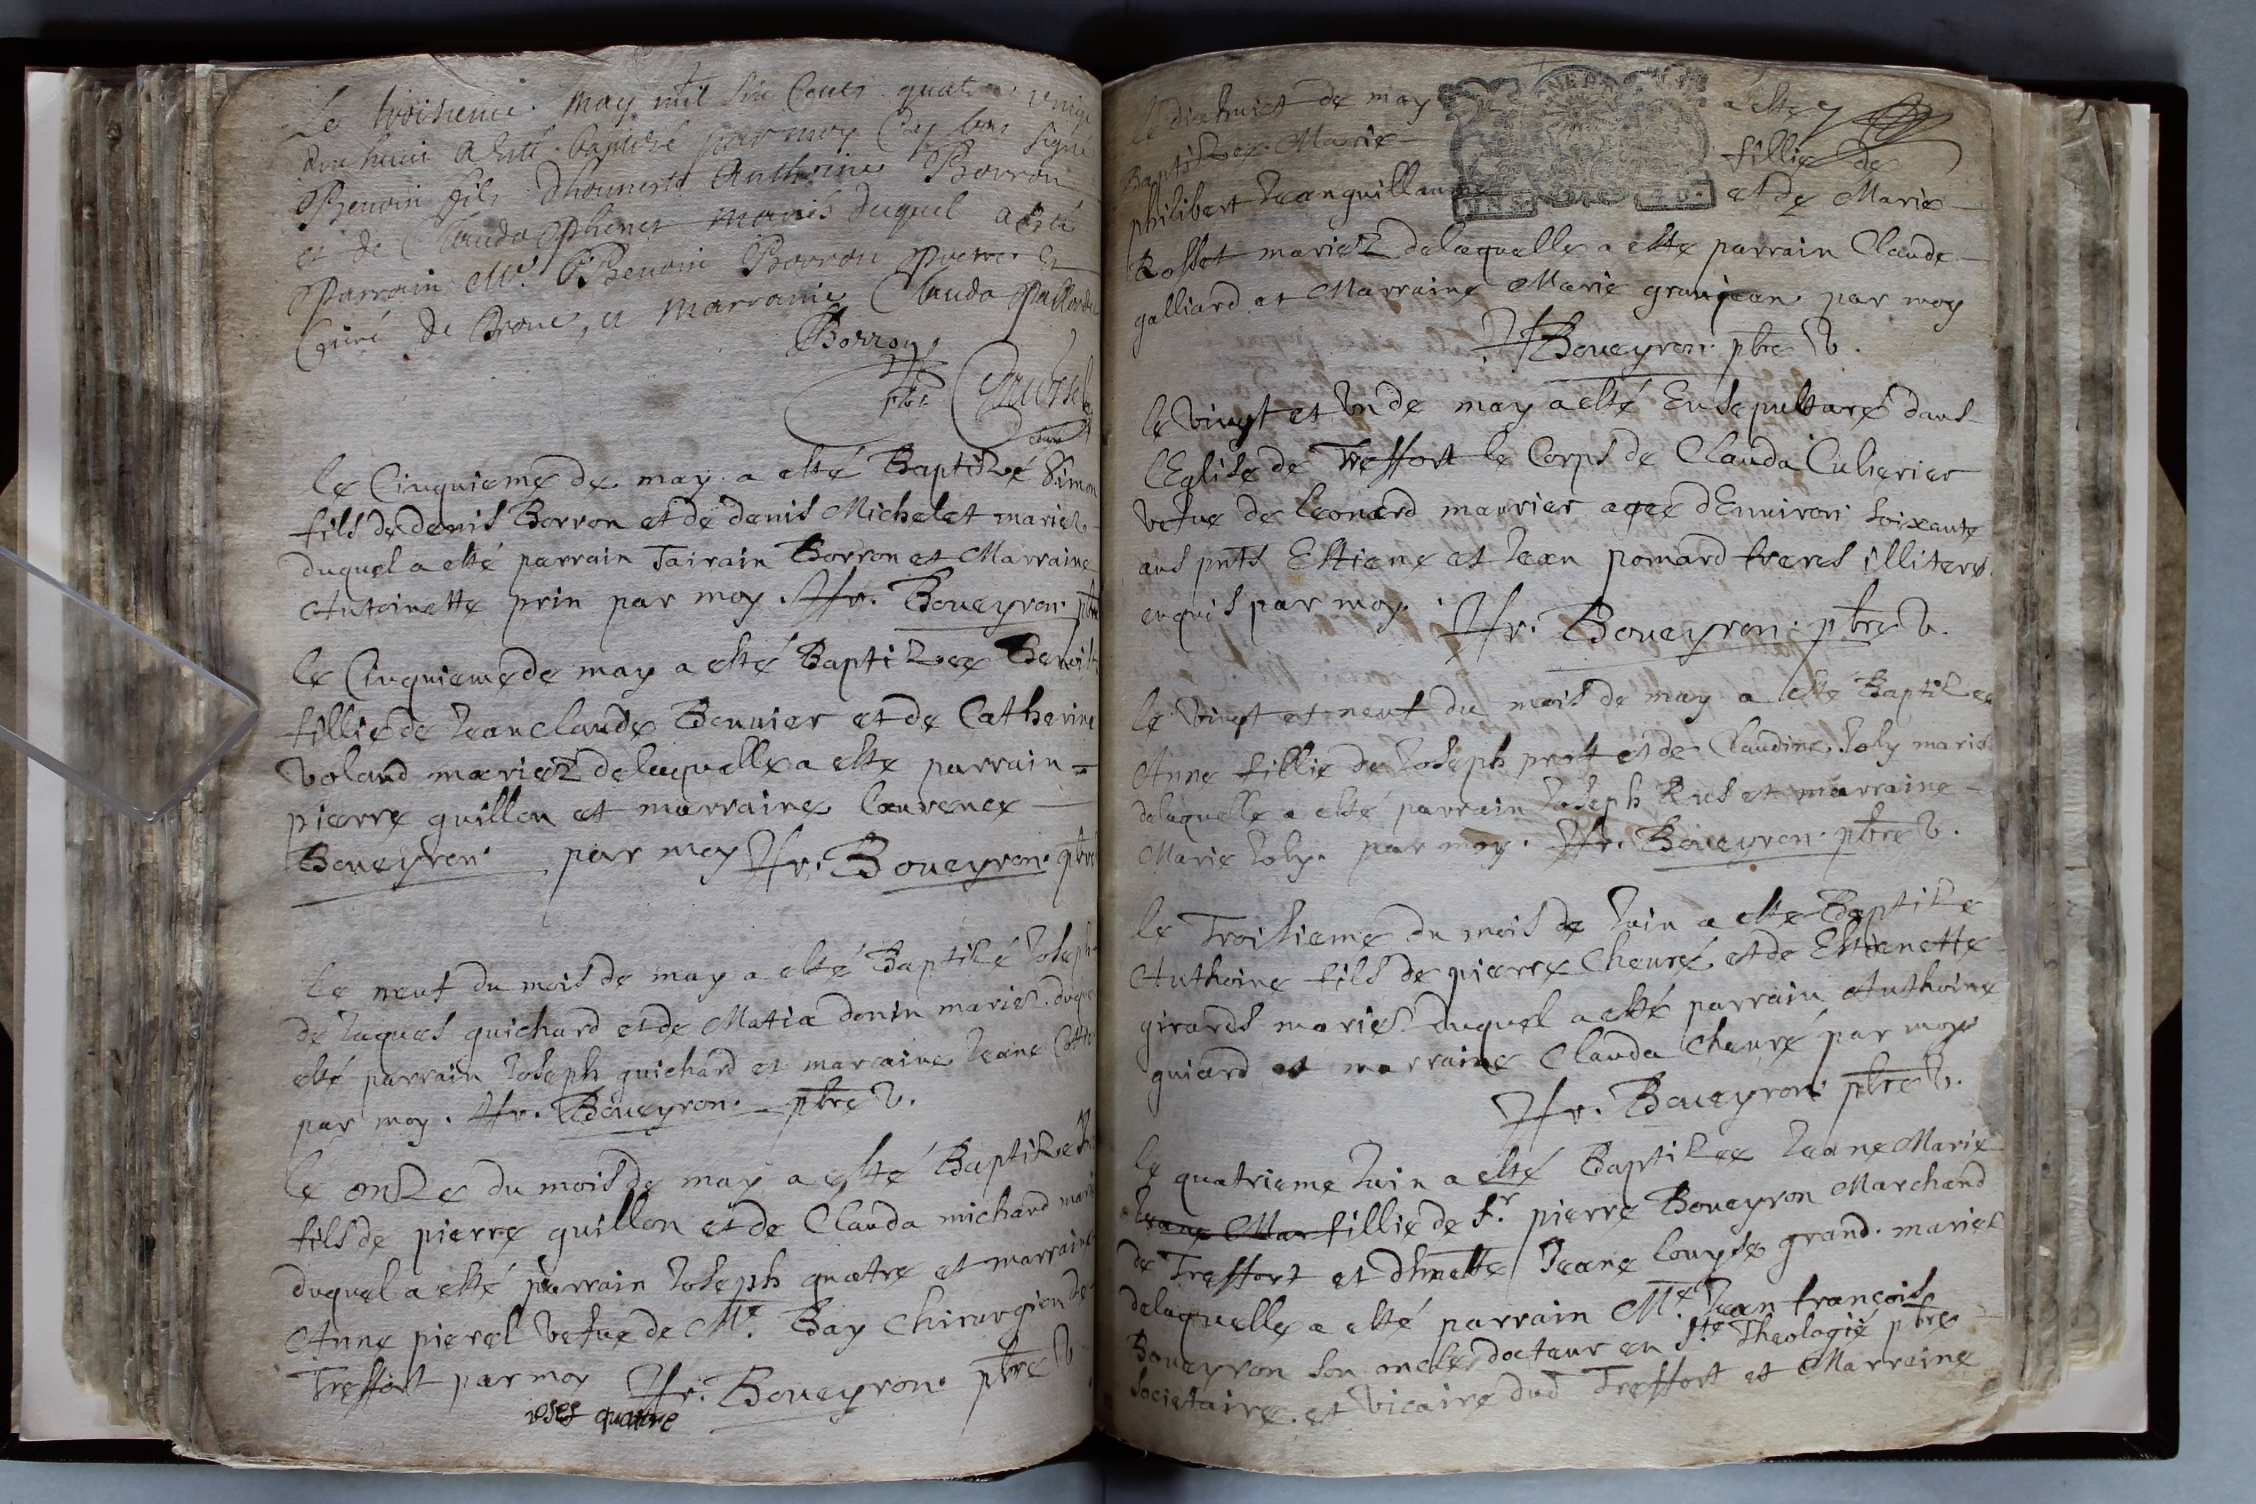 Le troisieme may mil six Cents quatre vingt
dix huict a esté baptisé par moy Curé bas signé
Benoist fils d'honneste Anthoine Borron
et de Clauda mariés duquel a esté
Parrain Mr. Benoist Borron prestre et
Curé de Brone, et marraine Clauda
Borron
ptre
curé
le Cinquieme de may a esté Baptizé Simon
fils de denis Borron et de denis Michelet mariez
duquel a esté parrain Tairain Borron et Marraine
Antoinette prin par moy. Jfr. Boueyron. ptre
le Cinquieme de may a esté Baptizee Benoiste
fillie de Jean claude Bouuier et de Catherine
Voland mariez delaquelle a esté parrain
pierre guillon et marraine laurence
Boueyron. par moy Jfr. Boueyron. ptre
le neuf du mois de may a esté Baptizé Joseph
de Jaques guichard et de Matia donin mariez. duquel
esté parrain Joseph guichard et marraine Jeane
par moy. Jfr. Boueyron. ptre V.
le onze du mois de may a esté Baptizé
fils de pierre guillon et de Clauda michard
duquel a esté parrain Joseph quatre et marraine
Anne pierel vefue de Mr. Bay Chirurgien de
Treffort par moy Jfr. Boueyron. ptre V
quatre
le dixhuict de may a esté
Baptizee Marie fillie de
philibert Jeanguillaume et de Marie
Rosset mariez delaquelle a esté parrain Claude
galliard et Marraine Marie granjean par moy
Jfr Boueyron. ptre V.
le Vingt et Vn de may a esté Ensepulturé dans
l'Eglise de Treffort le Corps de Clauda Cuberier
vefue de leonard maurier agee d'Enuiron soixante
ans pnts Estiene et Jean pomard freres illiteres
enquis par moy. Jfr. Boueyron. ptre V.
le Vingt et neuf du mois de may a esté Baptizee
Anne fillie de Joseph prost et de Claudine Joly mariez
delaquelle a esté parrain Joseph et marraine
Marie Joly. par moy. Jfr. Boueyron. ptre V.
le Troisieme du mois de Juin a esté Baptizé
Anthoine fils de pierre Cheuré et de Estienette
girards mariez duquel a esté parrain Anthoine
guiard et marraine Clauda Cheuré par moy
Jfr. Boueyron. ptre V.
le quatrieme Juin a esté Baptizee Jeane Marie
Jeane Mar fillie de Sr. pierre Boueyron Marchand
de Treffort et dhnette Jeane louyse grand. mariez
delaquelle a esté parrain Mre. Jean françois
Boueyron son oncle docteur en Ste. Theologie ptre
Societaire et Vicaire dud Treffort et Marraine